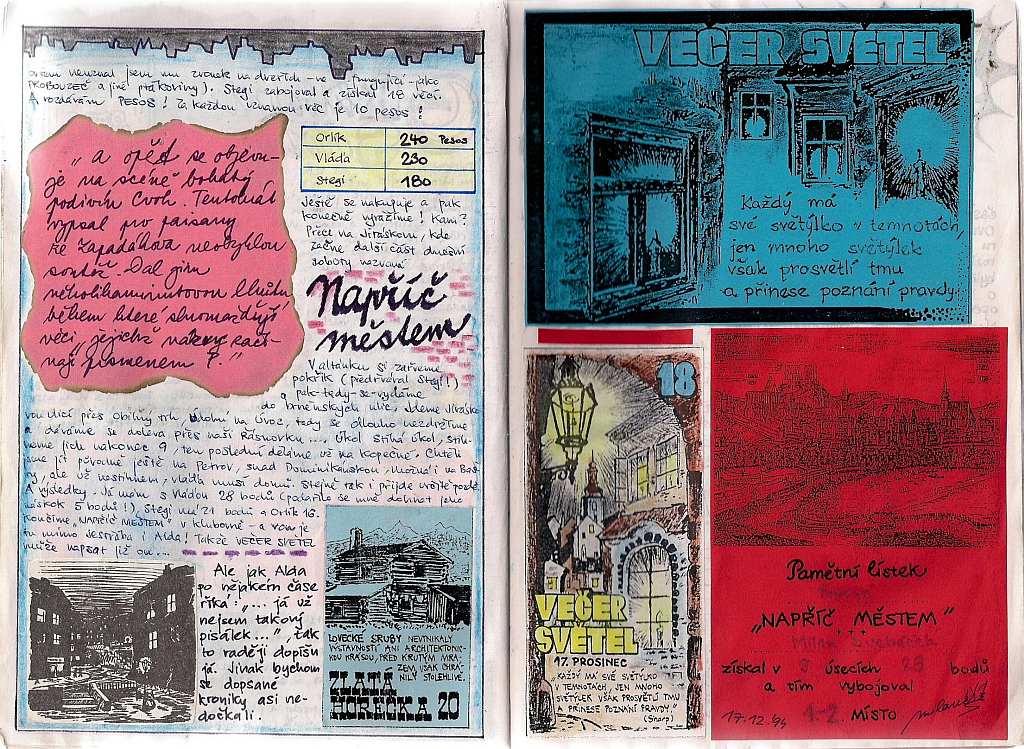 neuznal jsem mu zvonek na dveřích - ne fungující - jako
PROBOUZEČ a jiné ptákoviny). Stegi zabojoval a získal 18 věcí.
A rozdávám PESOS! Za každou uznanou věc je 10 pesos!
„ a opět se objevu-
je na scéně bohatý
podivín Cvoh. Tentokrát
vypsal pro
ze Zapadákova neobvyklou
soutěž. Dal jim
několikaminutovou lhůtu
během které shromažďují
věci, jejichž názvy začí-
nají písmenem P."
Orlík 240 Pesos
Vláďa 230
Stegi 180
Ještě se nakupuje a pak
konečně vyrážíme! Kam?
Přece na Jiráskou, kde
začne další část dnešní
soboty nazvaná
Napříč
městem
V altánku si zařveme
pokřik (předřvával Stegi!)
a pak - tedy - se - vydáme
do brněnských ulic, jdeme Jirásko-
vou ulicí přes Obilný trh na Úvoz, tady se dlouho nezdržíme
a dáváme se doleva přes naši Rásnovku..., úkol stíhá úkol, stih-
neme jich nakonec 9, ten poslední děláme už na Kopečné. Chtěli
jsme jít původně ještě na Petrov, snad Dominikánskou, možná i na Baš-
ty, ale už nestihnem, Vláďa musí domů. Stejně tak i přijde
A výsledky. Já mám s Vláďou 28 bodů (podařilo se mně dohnat jeho
náskok 5 bodů!), Stegi má 21 bodů a Orlík 16.
Končíme „NAPŘÍČ MĚSTEM" v klubovně - a
tu mimo Jestřába i Alda! Takže VEČER SVĚTEL
může napsat již on...
Ale jak Alda
po nějakém čase
říká: „... já už
nejsem takový
pisálek...", tak
to raději dopíšu
já. Jinak bychom
se dopsané
kroniky asi ne-
dočkali.
LOVECKÉ SRUBY NEVYNIKALY
VÝSTAVNOSTÍ ANI ARCHITEKTONIC-
KOU KRÁSOU, PŘED KRUTÝM MRA-
ZEM VŠAK CHRÁ-
NILY STOLEHLIVĚ.
ZLATÁ
HOREČKA 20
VEČER SVĚTEL
Každý má
své světýlko v temnotách,
jen mnoho světýlek
však prosvětlí tmu
a přinese poznání pravdy.
18
VEČER
SVĚTEL
17. PROSINEC
„KAŽDÝ MÁ SVÉ SVĚTÝLKO
V TEMNOTÁCH, JEN MNOHO
SVĚTÝLEK VŠAK PROSVĚTLÍ TMU
A PŘINESE POZNÁNÍ PRAVDY."
(Snorp)
Pamětní lístek
„NAPŘÍČ MĚSTEM"
Milan Svobáček
získal v 9 úsecích 28 bodů
a tím vybojoval
17.12.94 1-2. MÍSTO